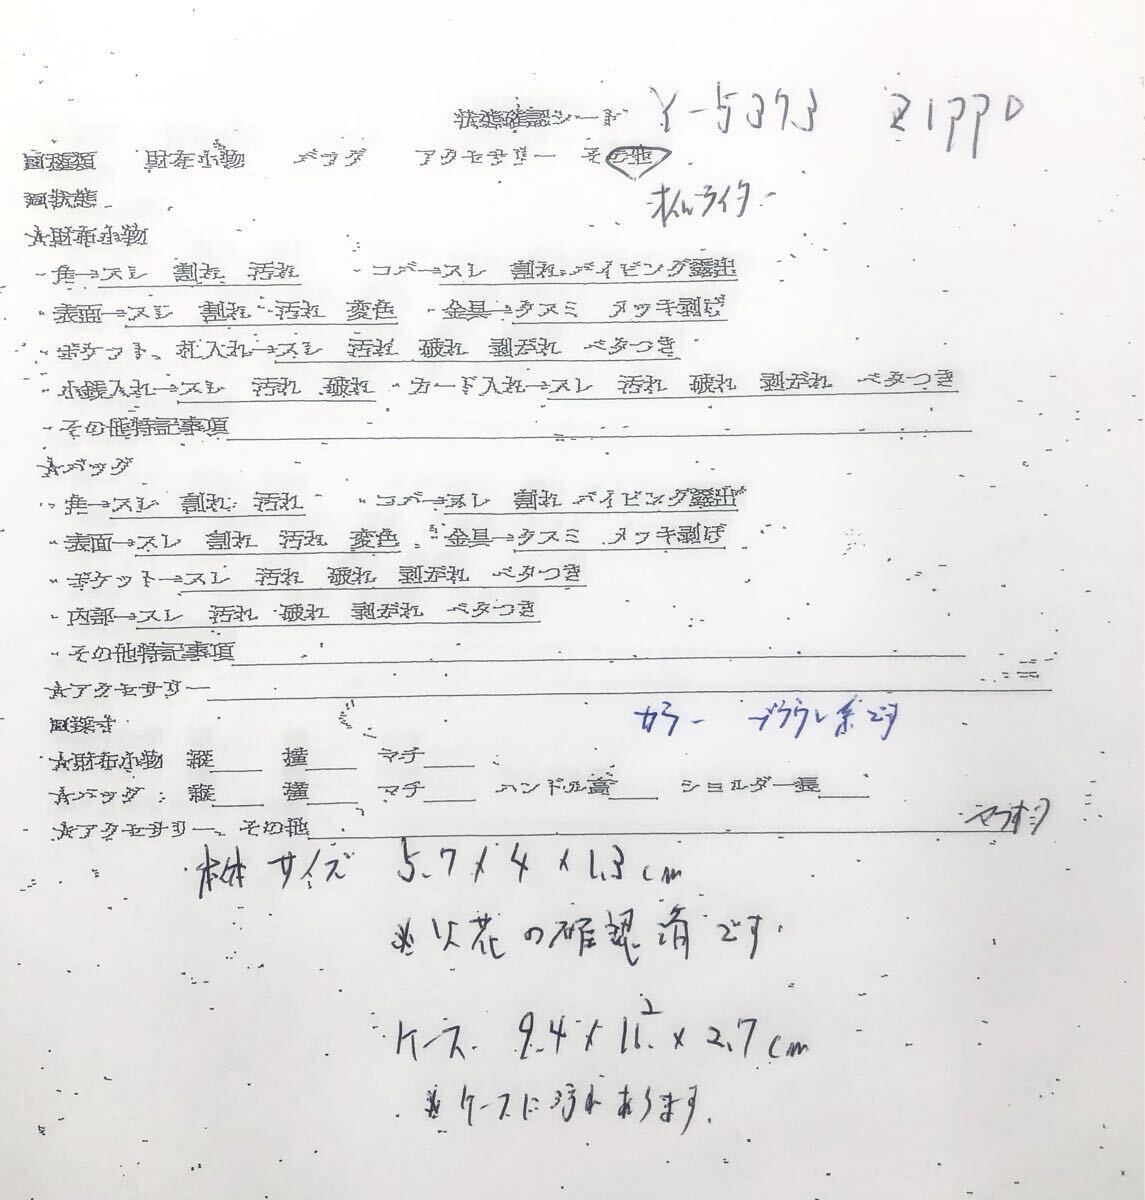 状態確認シート Y-5373 ZIPPO
☑種類 財布小物 バッグ アクセサリー その他
☑状態 オイルライター
★財布小物
・角→スレ 割れ 汚れ ・コバ→スレ 割れ パイピング露出
・表面→スレ 割れ 汚れ 変色 ・金具→クスミ メッキ剥げ
・ポケット、札入れ→スレ 汚れ 破れ 剥がれ ベタつき
・小銭入れ→スレ 汚れ 破れ ・カード入れ→スレ 汚れ 破れ 剥がれ ベタつき
・その他特記事項
★バッグ
・角→スレ 割れ 汚れ ・コバ→スレ 割れ パイピング露出
・表面→スレ 割れ 汚れ 変色 ・金具→クスミ メッキ剥げ
・ポケット→スレ 汚れ 破れ 剥がれ ベタつき
・内部→スレ 汚れ 破れ 剥がれ ベタつき
・その他特記事項
★アクセサリー
☑採寸 カラー ブラウン系です
★財布小物 縦 横 マチ
★バッグ 縦 横 マチ ハンドル高 ショルダー長
★アクセサリー、その他
本体サイズ 5.7×4×1.3cm
※火花の確認済です。
ケース 9.4×11.2×2.7cm
※ケースに汚れあります。